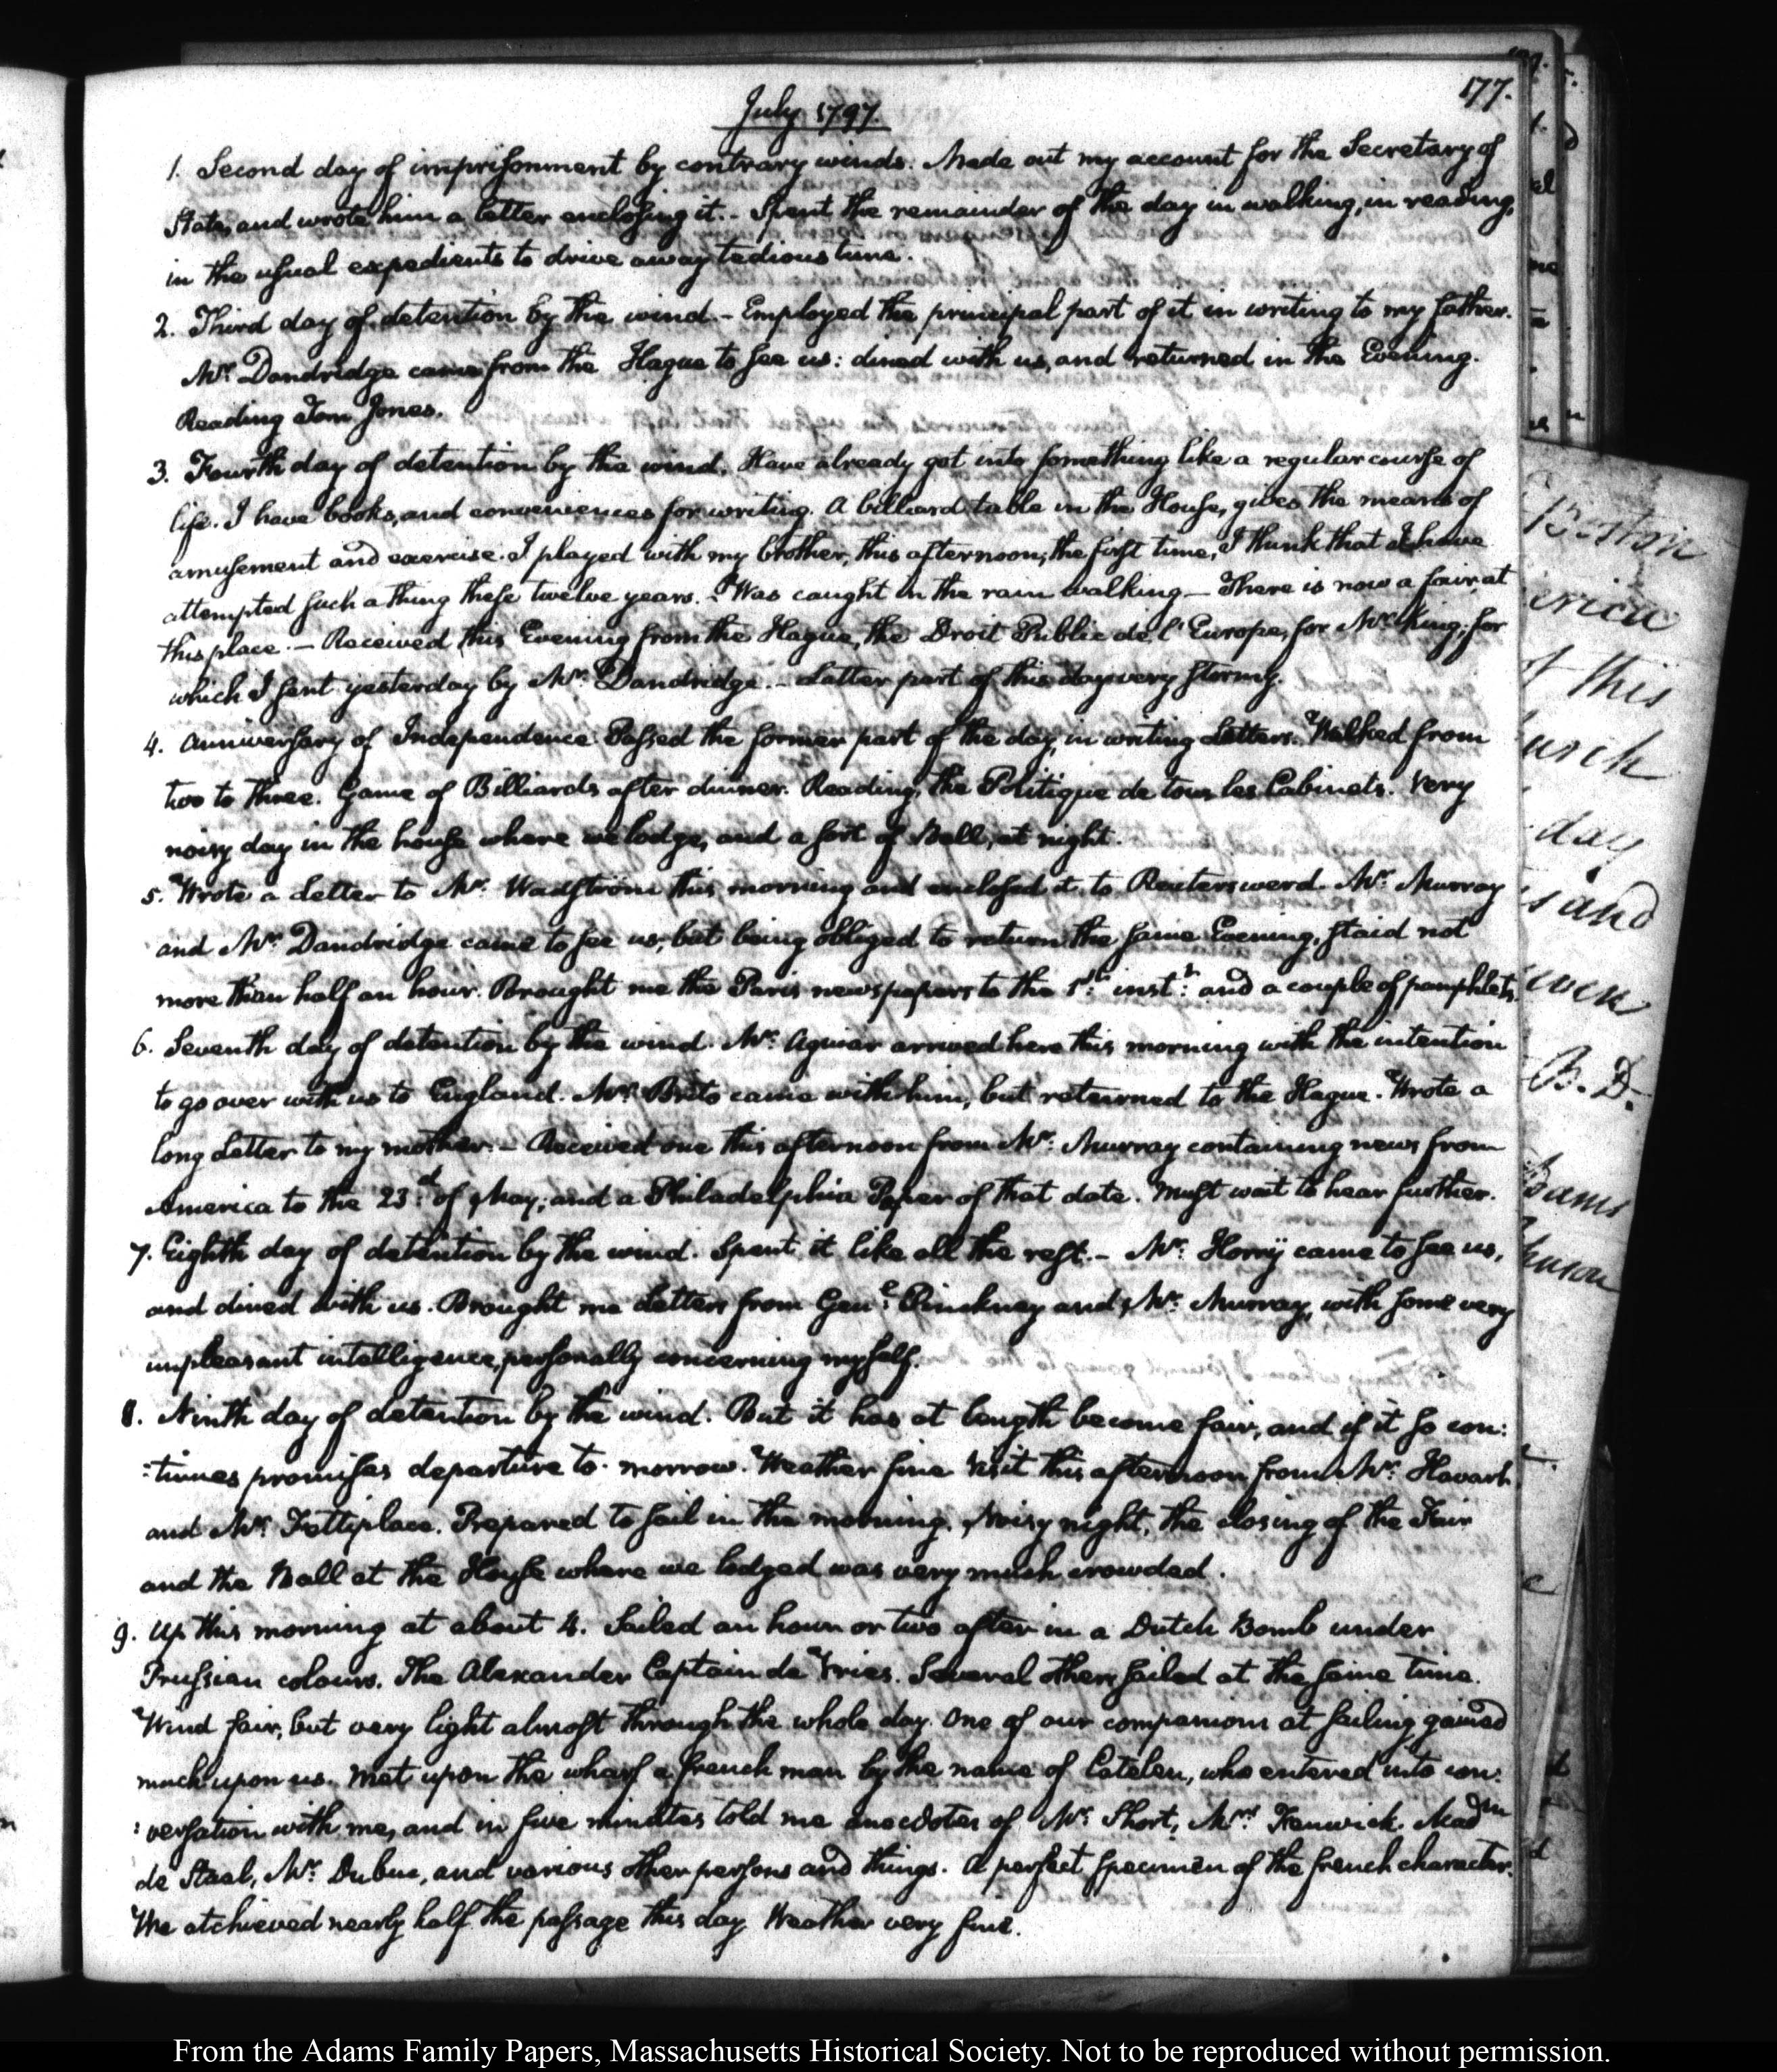 177.
July 1797.
1. Second day of imprisonment by contrary winds. Made out my account for the Secretary of
State, and wrote him a letter enclosing it. - Spent the remainder of the day in walking, in reading,
in the usual expedients to drive away tedious time.
2. Third day of detention by the wind. - Employed the principal part of it in writing to my father.
Mr. Dandridge came from the Hague to see us: dined with us, and returned in the Evening.
Reading Tom Jones.
3. Fourth day of detention by the wind. Have already got into something like a regular course of
life. I have books, and conveniences for writing. A billiard table in the House, gives the means of
amusement and exercise. I played with my brother, this afternoon; the first time, I think that I have
attempted such a thing these twelve years. - Was caught in the rain walking - There is now a fair, at
this place. - Received this Evening from the Hague, the Droit Public de l'Europe, for Mr. King; for
which I sent yesterday by Mr. Dandridge. - Latter part of this day very stormy.
4. Anniversary of Independence. Passed the former part of the day, in writing Letters. Walked from
two to three. Game of Billiards after dinner. Reading, the Politique de tous les Cabinets. Very
noisy day in the house where we lodge, and a sort of Ball, at night.
5. Wrote a Letter to Mr. Wadström this morning and enclosed it to Reuterswerd. Mr. Murray
and Mr. Dandridge came to see us, but being obliged to return the same Evening, staid not
more than half an hour. Brought me the Paris newspapers to the 1st. instt. and a couple of pamphlets.
6. Seventh day of detention by the wind. Mr. Aguiar arrived here this morning with the intention
to go over with us to England. Mr. Brito came with him, but returned to the Hague. Wrote a
long Letter to my mother. - Received one this afternoon from Mr. Murray containing news from
America to the 23d. of May; and a Philadelphia Paper of that date. Must wait to hear further.
7. Eighth day of detention by the wind. Spent it like all the rest. - Mr. Horrÿ came to see us,
and dined with us. Brought me Letters from Genl. Pinckney and Mr. Murray, with some very
unpleasant intelligence, personally concerning myself.
8. Ninth day of detention by the wind. But it has at length become fair, and if it so con:
:tinues promises departure to-morrow. Weather fine. Visit this afternoon from Mr. Havart
and Mr. Fettiplace. Prepared to sail in the morning. Noisy night, the closing of the Fair
and the Ball at the House where we lodged was very much crowded.
9. Up this morning at about 4. Sailed an hour or two after in a Dutch Bomb under
Prussian colours. The Alexander Captain de Vries. Several others sailed at the same time.
Wind fair, but very light almost through the whole day. One of our companions at sailing gained
much upon us. Met upon the wharf a french man by the name of Catelan, who entered into con:
:versation with me, and in five minutes told me anecdotes of Mr. Short, Mr. Fenwick, Madm
de Stael, Mr. Dubuc, and various other persons and things. A perfect specimen of the french character.
We atchieved nearly half the passage this day. Weather very fine.
Boston
this
day
and
B. D.
From the Adams Family Papers, Massachusetts Historical Society. Not to be reproduced without permission.